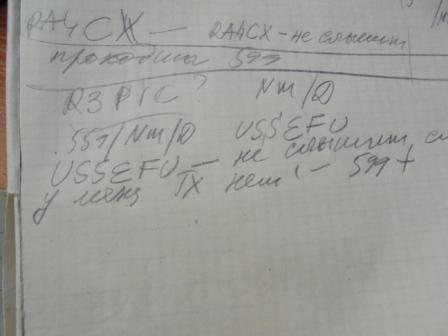 RA4CX — RA4CX - не слышит
проходила 599
R3PIC? Nm/D
559/Nm/D USSEFU
USSEFU — не слышит
у меня TX нет! — 599+